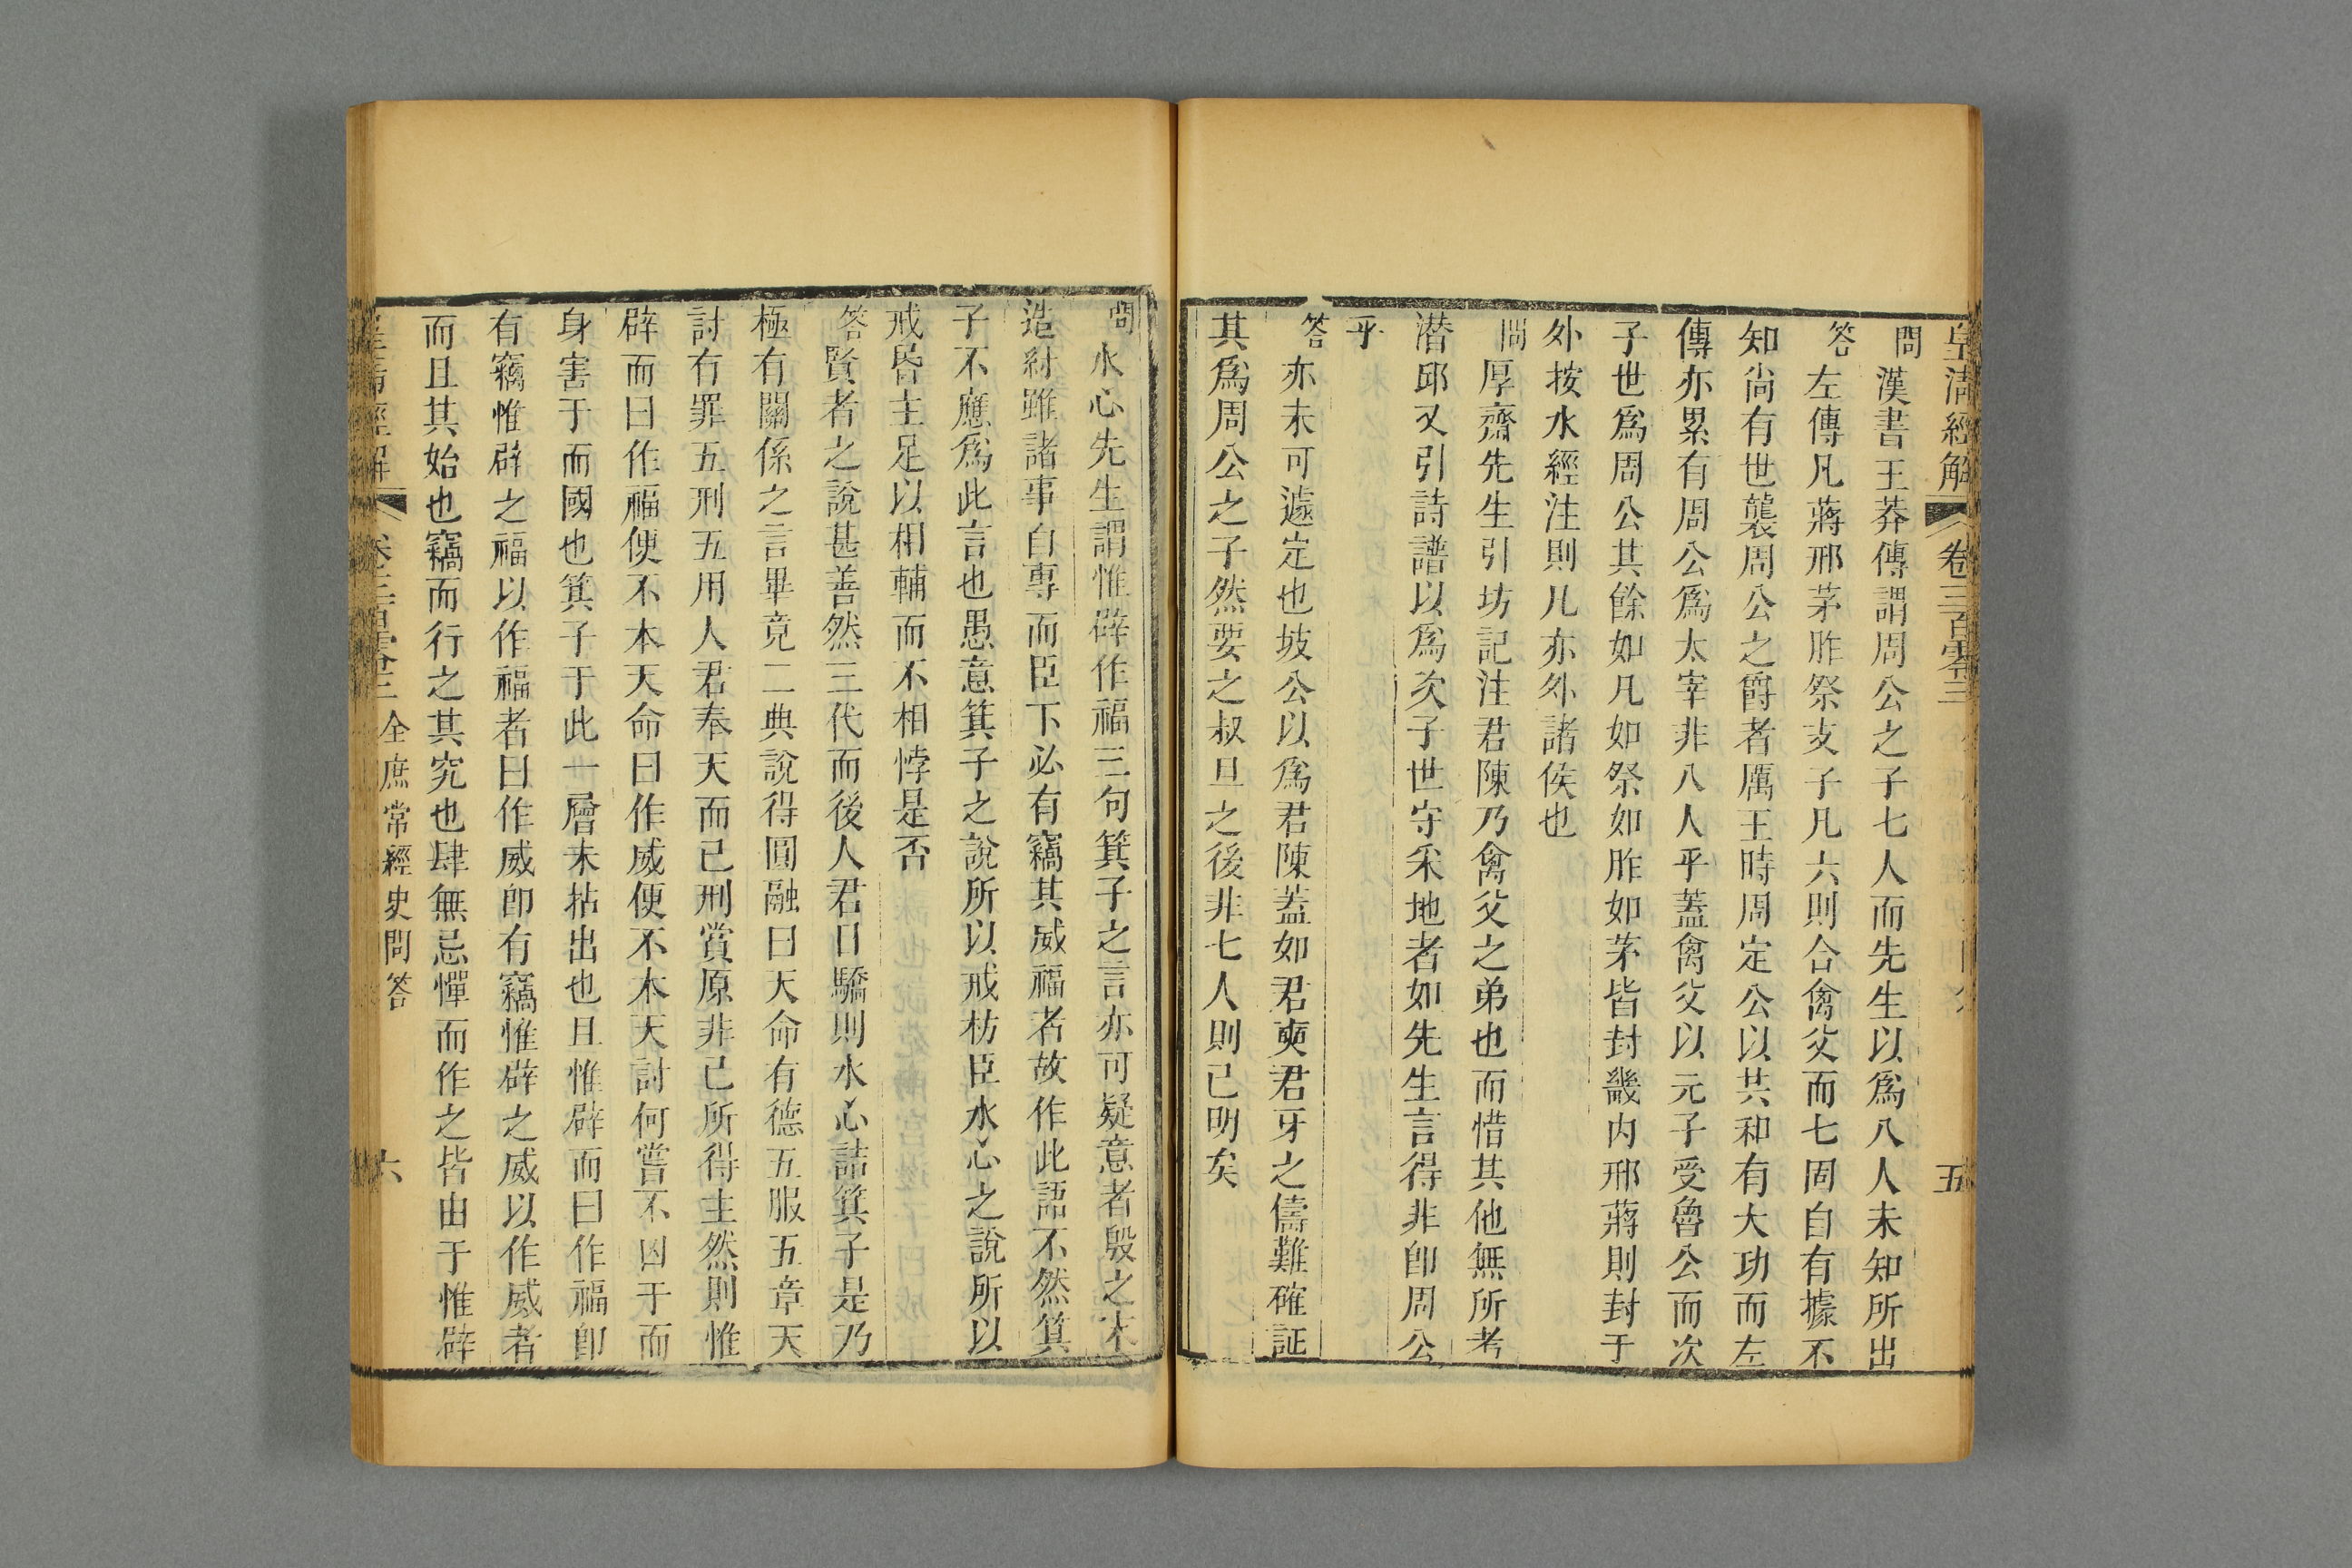 皇清經解 卷三百零三 五
問漢書王莽傳謂周公之子七人而先生以爲八人未知所出
答左傳凡蔣邢茅胙祭支子凡六則合禽父而七周自有據不
知尚有世襲周公之爵者厲王時周定公以共和有大功而左
傳亦累有周公爲太宰非八人乎蓋禽父以元子受魯公而次
子世爲周公其餘如凡如祭如胙如茅皆封畿内邢蔣則封于
外按水經注則凡亦外諸侯也
問厚齋先生引坊記注君陳乃禽父之弟也而惜其他無所考
潛邱又引詩譜以爲次子世守采地者如先生言得非即周公
乎
答亦未可遽定也坡公以爲君陳蓋如君奭君牙之儔難確証
其爲周公之子然要之叔旦之後非七人則已明矣
問水心先生謂惟辟作福三句箕子之言亦可疑意者殷之末
造紂雖諸事自專而臣下必有竊其威福者故作此語不然箕
子不應爲此言也愚意箕子之說所以戒枋臣水心之說所以
戒昏主足以相輔而不相悖是否
答賢者之說甚善然三代而後人君日驕則水心詰箕子是乃
極有關係之言畢竟二典說得圓融曰天命有德五服五章天
討有罪五刑五用人君奉天而已刑賞原非已所得主然則惟
辟而曰作福便不本天命曰作威便不本天討何嘗不凶于而
身害于而國也箕子于此一層未拈出也且惟辟而曰作福卽
有竊惟辟之福以作福者曰作威卽有竊惟辟之威以作威者
而且其始也竊而行之其究也肆無忌憚而作之皆由于惟辟
皇清經解 卷三百零三 全庶常經史問答 六